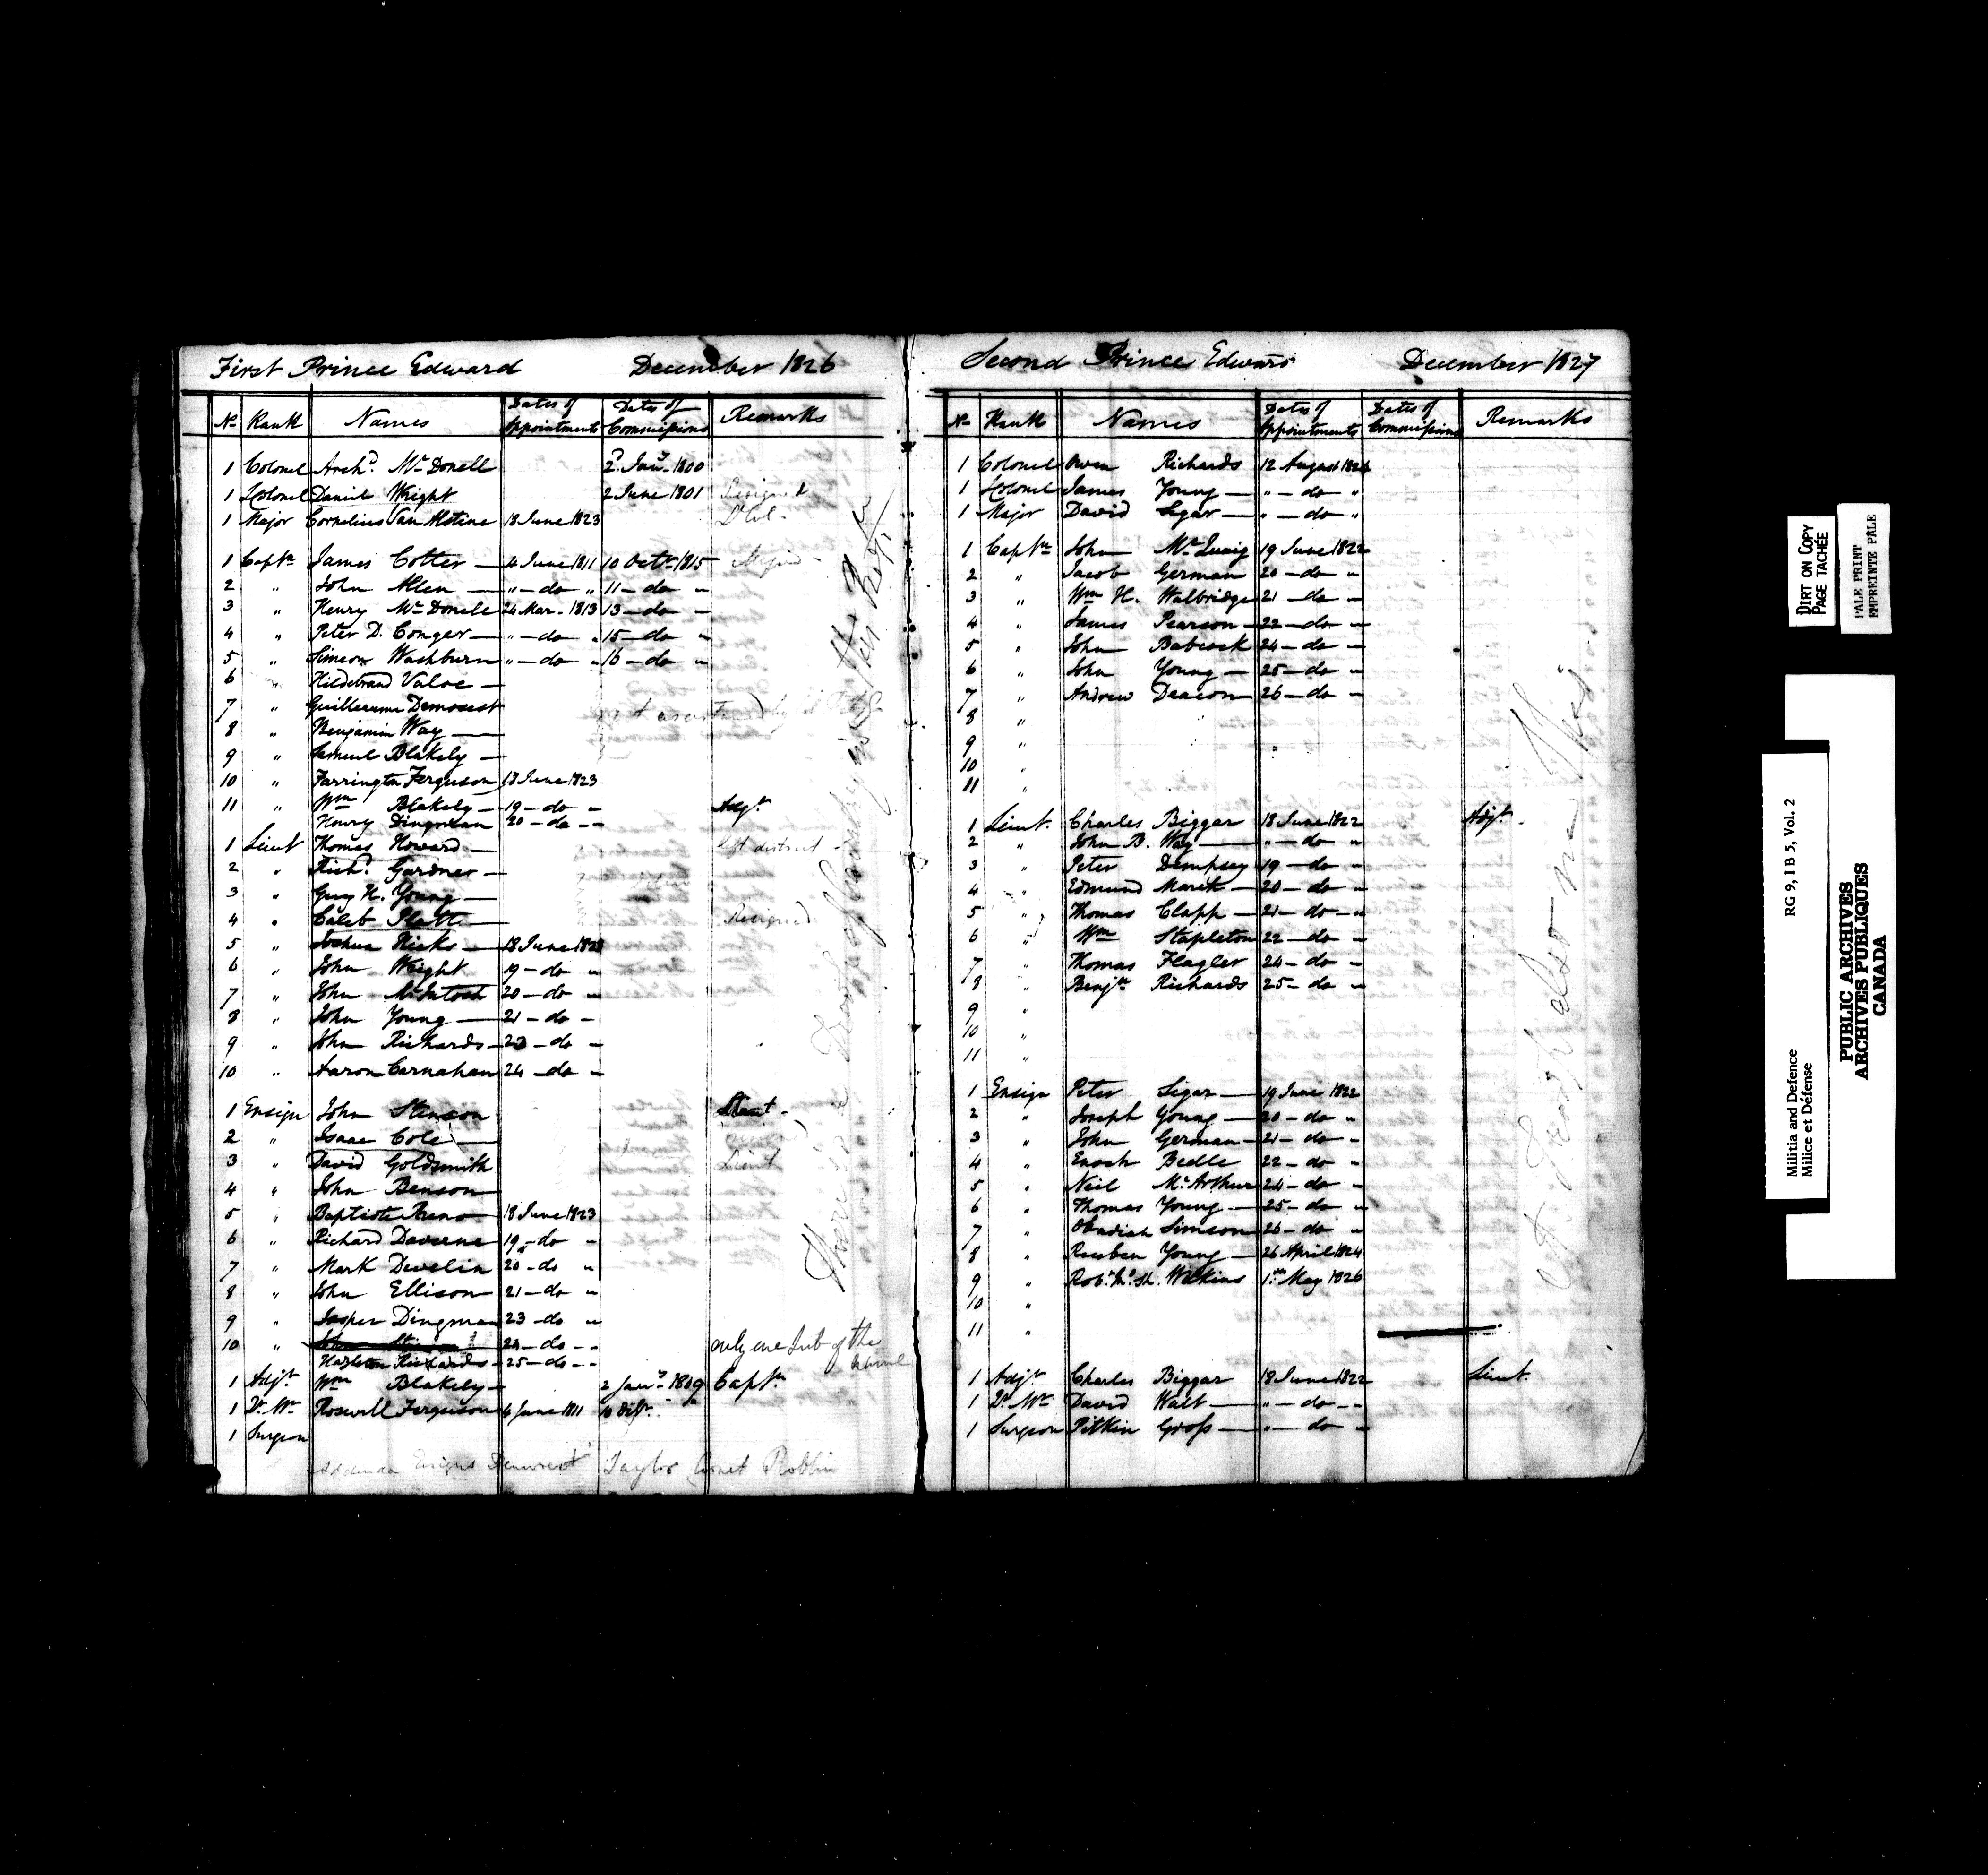 First Prince Edward December 1826
No Rank Names Dates of Appointments Dates of Commissions Remarks
1 Colonel Archd. McDonell 2d. Jany. 1800
1 Lt Colonel Daniel Wright 2 June 1801 Resigned
1 Major Cornelius Van Alstine 18 June 1823 Lt Col.
1 Captn James Cotter — 4 June 1811 10 Octr. 1815
2 " John Allen — " — do " 11 — do "
3 " Henry McDonell 24 Mar. 1813 13 — do "
4 " Peter D. Conger — " — do " 15 — do "
5 " Simeon Washburn " — do " 16 — do "
6 " Hildebrand Valoe —
7 " Guillerme Demorest
8 " Benjamin Way —
9 " Samuel Blakely —
10 " Farrington Ferguson 18 June 1823
11 " Wm Blakely — 19 — do " Adjt
Henry Dingman 20 — do - -
1 Lieut Thomas Howard — left district
2 " Richd. Gardner —
3 " Guy H. Young —
4 " Caleb Platt — Resigned
5 " Joshua Hicks — 18 June 182
6 " John Wright 19 — do "
7 " John McIntosh 20 — do "
8 " John Young — 21 — do -
9 " John Richards — 23 — do -
10 " Aaron Carnahan 24 — do -
1 Ensign John Stenson Lieut -
2 " Isaac Cole —
3 " David Goldsmith Lieut
4 " John Benson
5 " Baptiste Reno — 18 June 1823
6 " Richard Davern 19 — do "
7 " Mark Develin 20 - do "
8 " John Ellison 21 — do "
9 " Jasper Dingman 23 — do "
10 " 24 — do - - only one Sub of the name
Hazleton Richards — 25 — do - -
1 Adjt. Wm Blakely — 2 Jany. 1809 Captn
1 Qr. Mr. Roswell Ferguson 4 June 1811 10
1 Surgeon
Addenda Ensigns Demorest Taylor Cornet Roblin
Second Prince Edward December 1827
No Rank Names Dates of Appointments Dates of Commissions Remarks
1 Colonel Owen Richards 12 August 182
1 Lt Colonel James Young — " — do "
1 Major David Segar — " — do "
1 Captn John McQuaig 19 June 1822
2 " Jacob German 20 — do "
3 " Wm H. Walbridge 21 — do -
4 " James Pearson — 22 — do -
5 " John Babcock 24 — do -
6 " John Young — 25 — do "
7 " Andrew Deacon 26 — do "
8 "
9 "
10 "
11 "
1 Lieut. Charles Biggar 18 June 1822 Adjt.
2 " John B. Way — " — do "
3 " Peter Dempsey 19 — do -
4 " Edmund Marsh — 20 — do -
5 " Thomas Clapp — 21 — do - "
6 " Wm Stapleton 22 — do "
7 " Thomas Flagler 24 — do -
8 " Benjn. Richards 25 — do "
9 "
10 "
11 "
1 Ensign Peter Segar — 19 June 1822
2 " Joseph Young — 20 — do "
3 " John German — 21 — do -
4 " Enoch Bedle 22 — do "
5 " Neil McArthur 24 — do "
6 " Thomas Young — 25 — do "
7 " Obadiah Simson 26 — do "
8 " Reuben Young — 26 April 1824
9 " Wilkins 1st May 1826
10 "
11 "
1 Adjt. Charles Biggar 18 June 1822 Lieut.
1 Qr. Mr. David Walt — " — do - -
1 Surgeon Pitkin Gross — " — do "
DIRT ON COPY
PAGE TACHÉE
PALE PRINT
EMPREINTE PALE
Militia and Defence RG 9, I B 5, Vol. 2
Milice et Défense
PUBLIC ARCHIVES
ARCHIVES PUBLIQUES
CANADA